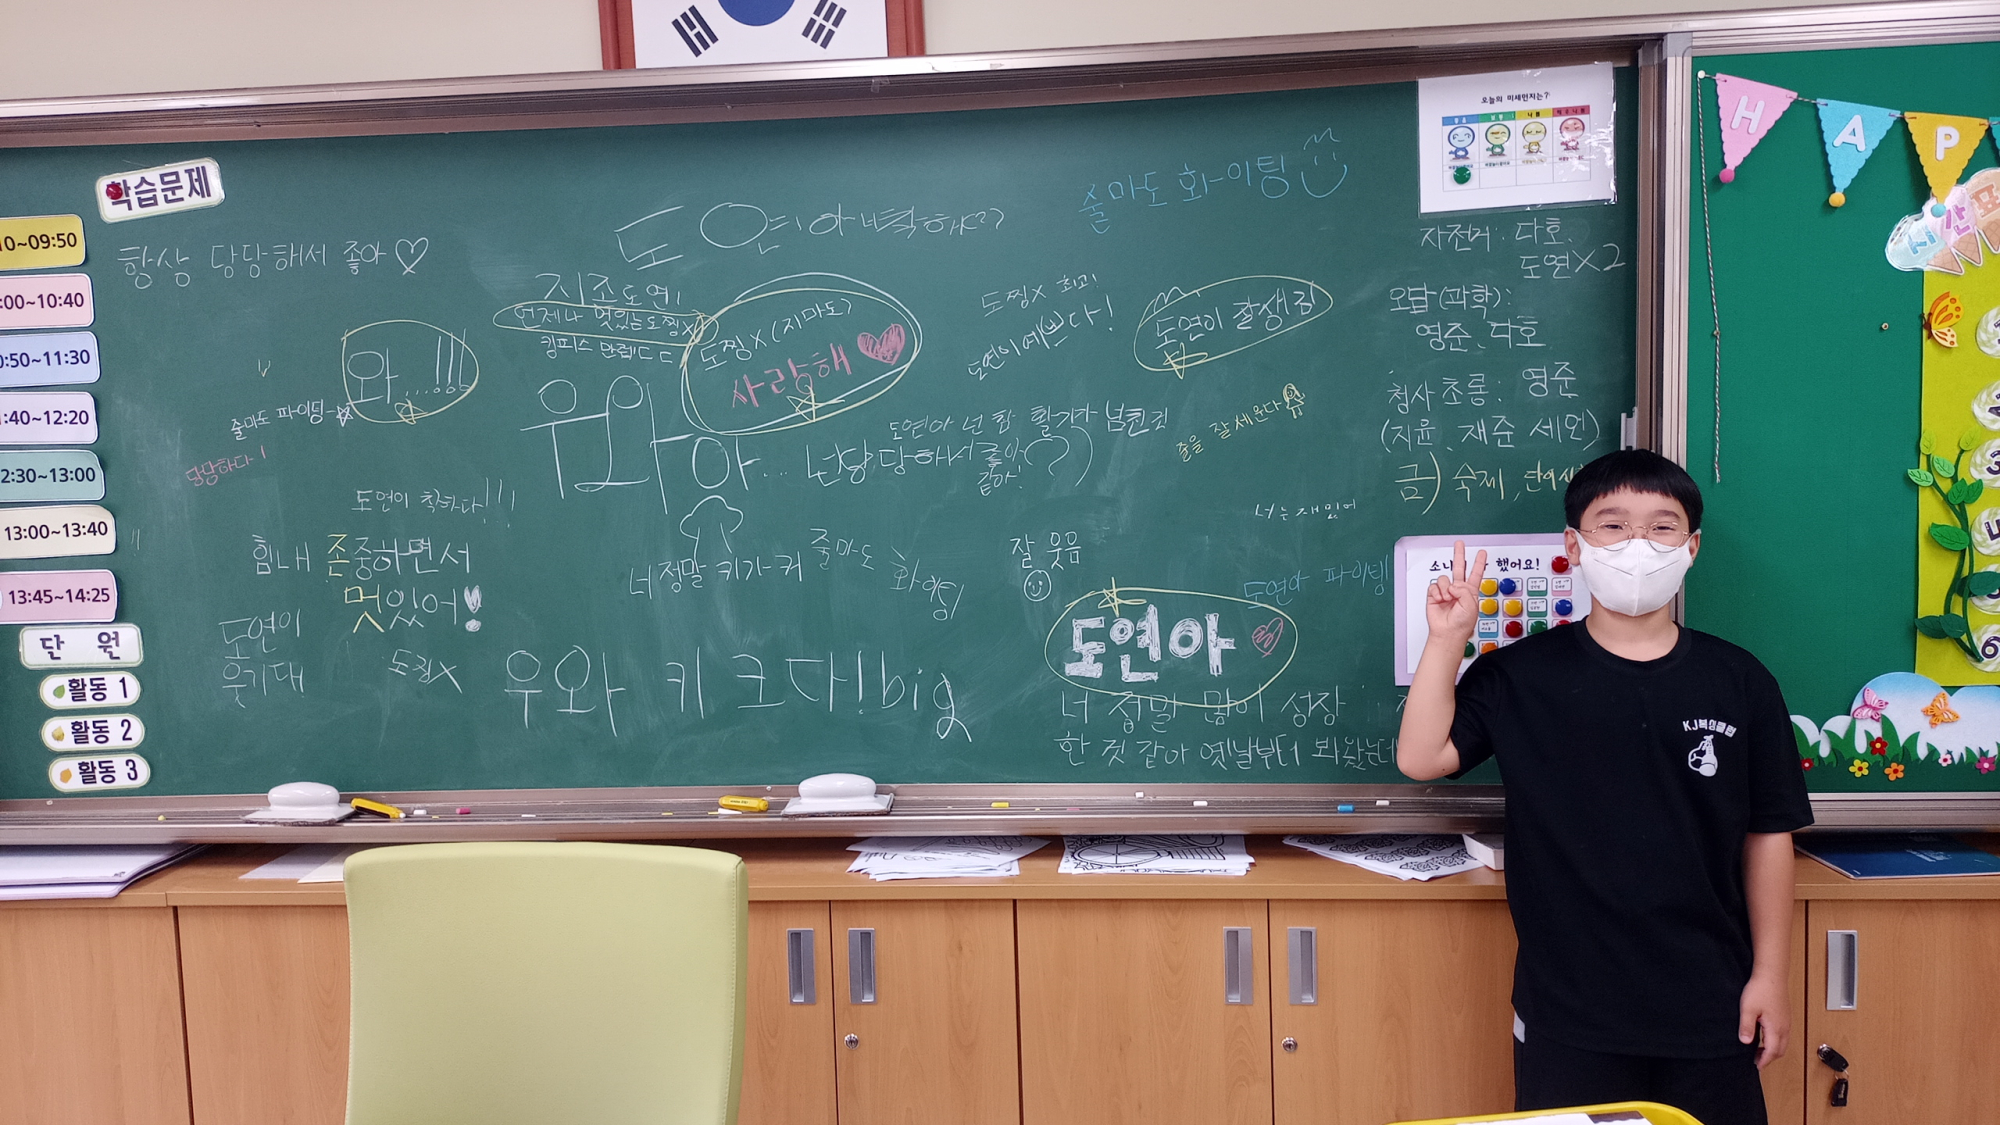 학습문제
오늘의 미세먼지는?
줄마도 화이팅
H A P
10~09:50
:00~10:40
0:50~11:30
:40~12:20
2:30~13:00
13:00~13:40
13:45~14:25
단 원
활동 1
활동 2
활동 3
항상 당당해서 좋아♡
도연아 착해
지조도연!
언제나 멋있는도찡x
도찡X(지마도)
사랑해
도찡x 최고!
도연이예쁘다!
도연이 잘생김
자전거: 다호,
도연X2
오답(과학):
영준, 다호
청사초롱: 영준
(지윤, 재준 세인)
금) 숙제,
와...!!!
줄마도 파이팅
당당하다!
와 아... 넌당당하서 좋아
같아!
도연아 넌 참 활기가 넘친걸
줄을 잘세운다
도연이 착하다!!!
너는재밌어
힘내 존중하면서
멋있어!
너정말 키가커
줄마도 화이팅
잘 웃음
도연아 파이팅
도연이
웃기대
도찡X
우와 키 크다! big
도연아
너 정말 많이 성장
한 것 같아 옛날부터 봐왔는데
했어요!
KJ복싱클럽